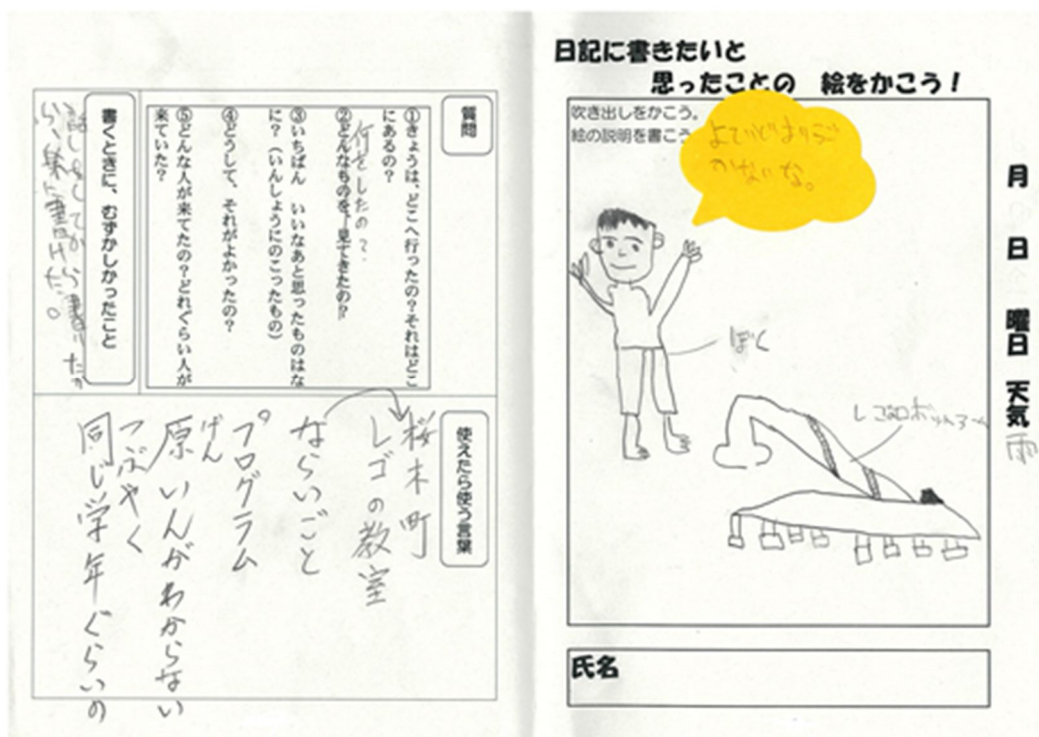 日記に書きたいと
思ったことの 絵をかこう！
月 日 曜日 天気 雨
吹き出しをかこう。
絵の説明を書こう
かないな。
ぼく
氏名
質問
①きょうは、どこへ行ったの？それはどこ
にあるの？
②どんなものを、見てきたの？
何をしたの？
③いちばん いいなあと思ったものはな
に？（いんしょうにのこったもの）
④どうして、それがよかったの？
⑤どんな人が来てたの？どれぐらい人が
来ていた？
書くときに、むずかしかったこと
話しをしてから書いたか
ら、楽に書けた。
使えたら使う言葉
桜木町
レゴの教室
ならいごと
プログラム
げん
原いんがわからない
つぶやく
同じ学年ぐらいの